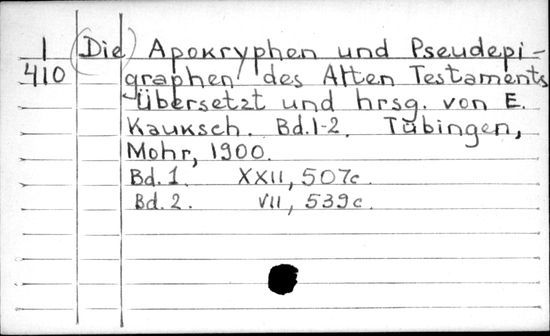 I (Die) Apoкryphen und Pseudepi-
410 graphen des Alten Testaments
Übersetzt und hrsg. von E.
Kauкsch. Bd.1-2. Tübingen,
Mohr, 1900.
Bd. 1. XXII, 507c.
Bd. 2. VII, 539c.